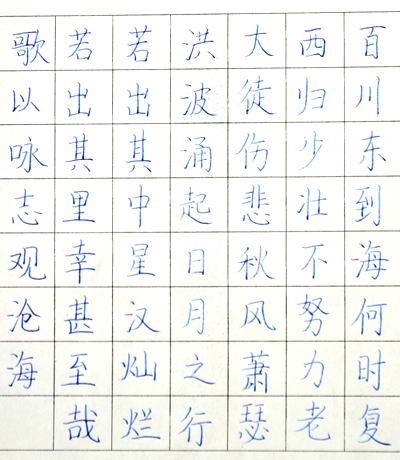 百川东到海何时复
西归少壮不努力老
大徒伤悲秋风萧瑟
洪波涌起日月之行
若出其中星汉灿烂
若出其里幸甚至哉
歌以咏志观沧海